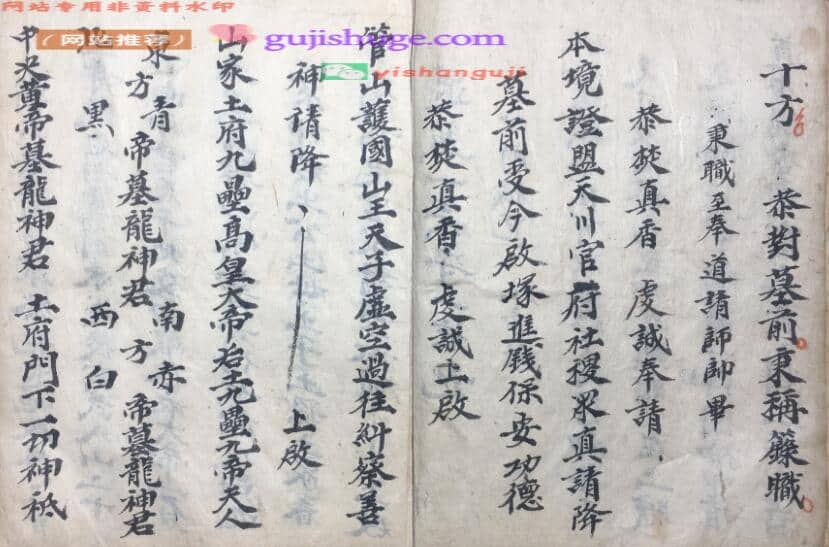 十方 恭對墓前秉稱籙職
秉職至奉道請師師畢
恭焚真香 虔誠奉請
本境證盟天川官府社稷眾真請降
墓前受今啟塚進錢保安功德
恭焚真香 虔誠上啟
管山護國山王天子虛空過往糾察善
神請降 上啟
山家土府九壘高皇大帝后土九壘元帝夫人
東方青 帝墓龍神君 南方赤 帝墓龍神君
黑 西白
中央黃帝墓龍神君 土府門下一切神祇
网站专用非资料水印
(网站推荐)
gujishuge.com
yishanguji